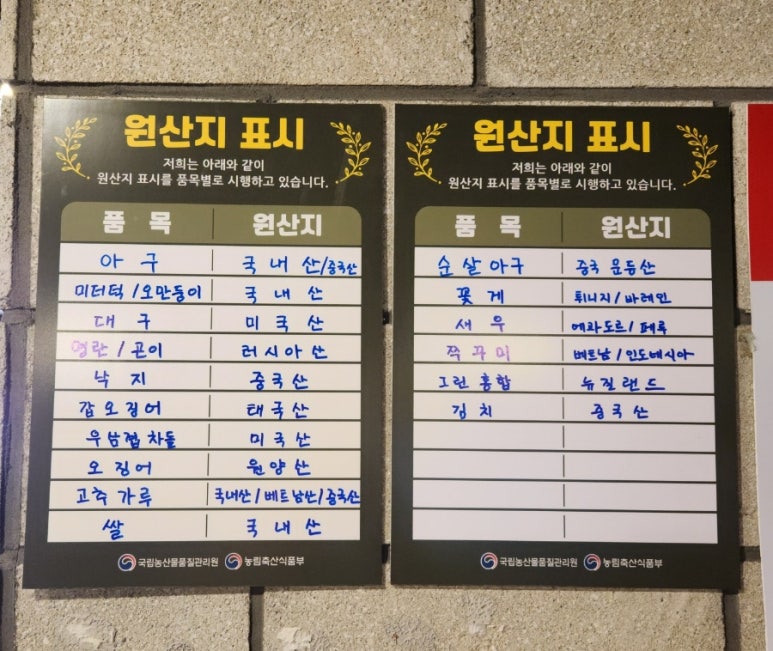 원산지 표시
저희는 아래와 같이
원산지 표시를 품목별로 시행하고 있습니다.
품 목 원산지
아 구 국 내 산/중국산
미더덕 /오만둥이 국 내 산
대 구 미 국 산
명란 / 곤이 러시아 산
낙 지 중국 산
갑 오 징어 태국산
우삼겹 차돌 미국산
오 징어 원양 산
고추 가루 국내산/베트남산/중국산
쌀 국 내 산
국립농산물품질관리원 농림축산식품부
원산지 표시
저희는 아래와 같이
원산지 표시를 품목별로 시행하고 있습니다.
품 목 원산지
순 살 아구 중국
꽃 게 튀니지 / 바레인
새 우 에콰도르/ 페루
쭈꾸미 베트남 / 인도네시아
그린 홍합 뉴질랜드
김 치 중국 산
국립농산물품질관리원 농림축산식품부